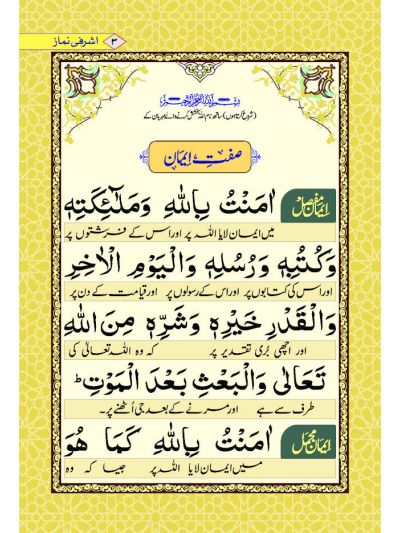 اشرفی نماز ۳
بسم اللہ الرحمن الرحیم
(شروع کرتا ہوں) ساتھ نام اللہ بخشش کرنے والے مہربان کے
صفتِ اِیمان
ایمان مفصل اٰمَنْتُ بِاللّٰهِ وَمَلٰٓئِكَتِهٖ
میں ایمان لایا اللہ پر اور اس کے فرشتوں پر
وَكُتُبِهٖ وَرُسُلِهٖ وَالْيَوْمِ الْاٰخِرِ
اور اس کی کتابوں پر اور اس کے رسولوں پر اور قیامت کے دن پر
وَالْقَدْرِ خَيْرِهٖ وَشَرِّهٖ مِنَ اللّٰهِ
اور اچھی بُری تقدیر پر کہ وہ اللہ تعالیٰ کی
تَعَالٰى وَالْبَعْثِ بَعْدَ الْمَوْتِ ؕ
طرف سے ہے اور مرنے کے بعد جی اُٹھنے پر۔
ایمان مجمل اٰمَنْتُ بِاللّٰهِ كَمَا هُوَ
میں ایمان لایا اللہ پر جیسا کہ وہ